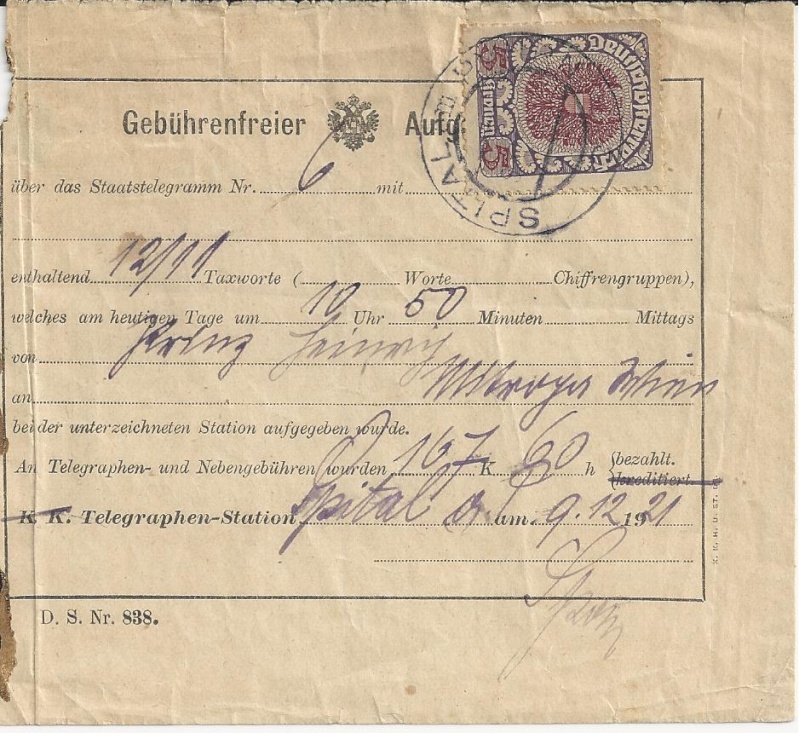 5
Deutschösterreich
5
SPITAL
Gebührenfreier Aufg
über das Staatstelegramm Nr. 6 mit
enthaltend 12/11 Taxworte ( Worte Chiffrengruppen),
welches am heutigen Tage um 10 Uhr 50 Minuten Mittags
von Prinz Heinrich
an Mitropa Wien
bei der unterzeichneten Station aufgegeben wurde.
An Telegraphen- und Nebengebühren wurden 167 K 60 h bezahlt.
kreditiert.
K. K. Telegraphen-Station Spital a. am 9.12 1921
D. S. Nr. 838.